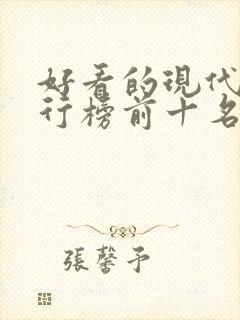 好看的現代
行榜前十名
張馨予